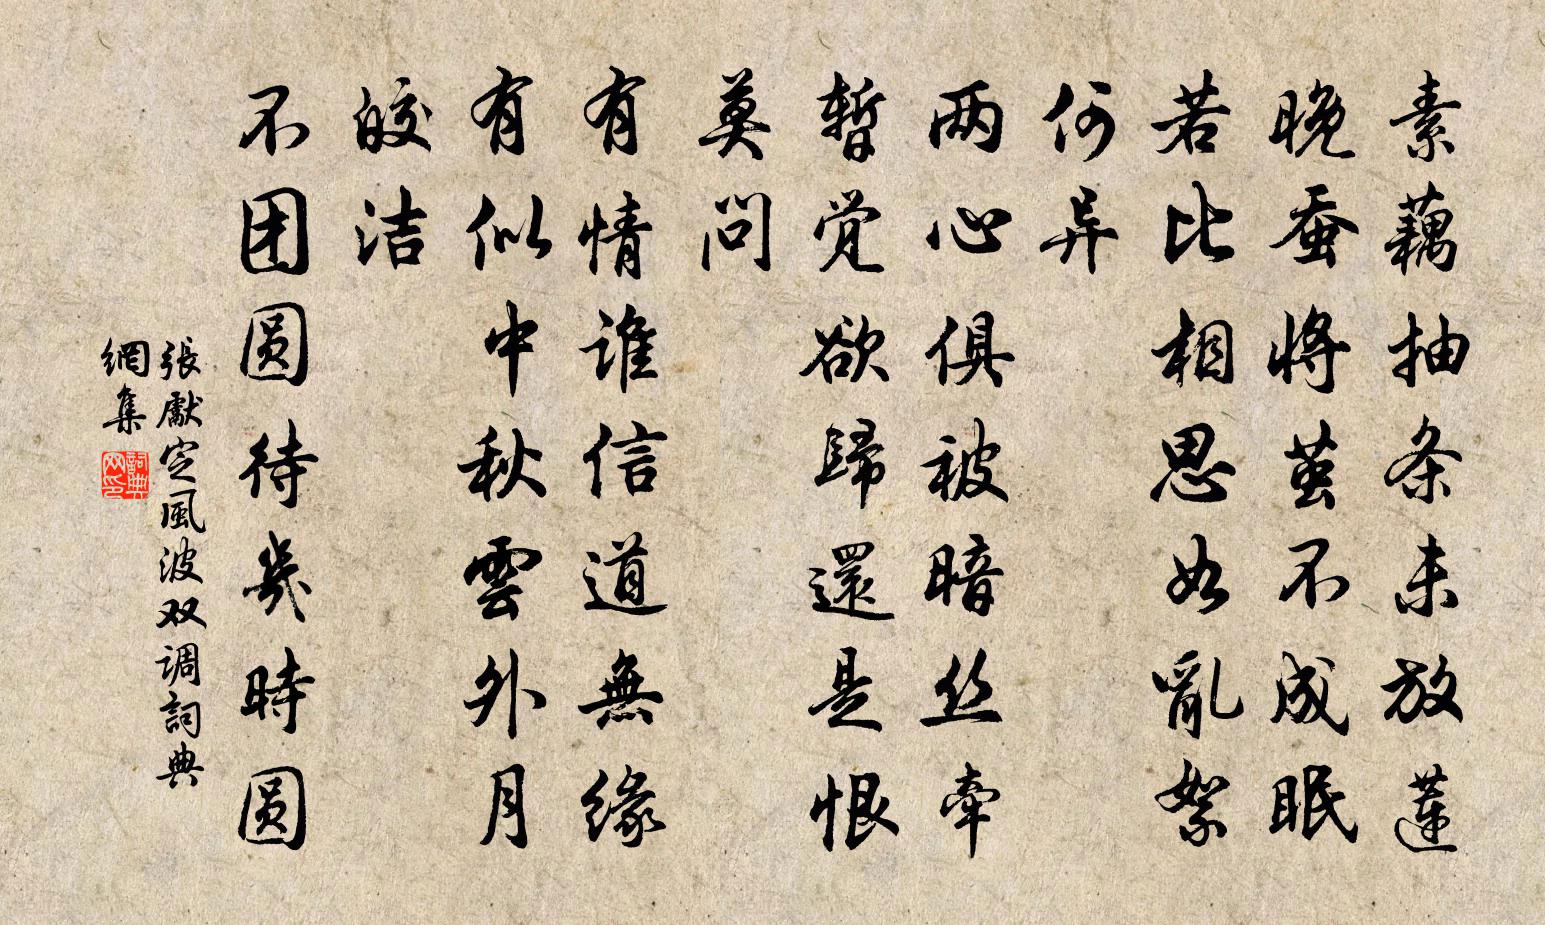 素藕抽条未放蓮
晚蚕将茧不成眠
若比相思如亂絮
何异
两心俱被暗丝牽
暫觉欲歸還是恨
莫问
有情谁信道無缘
有似中秋雲外月
皎洁
不团圆待幾時圆
張獻定風波双调詞典
網集
詞典
网印